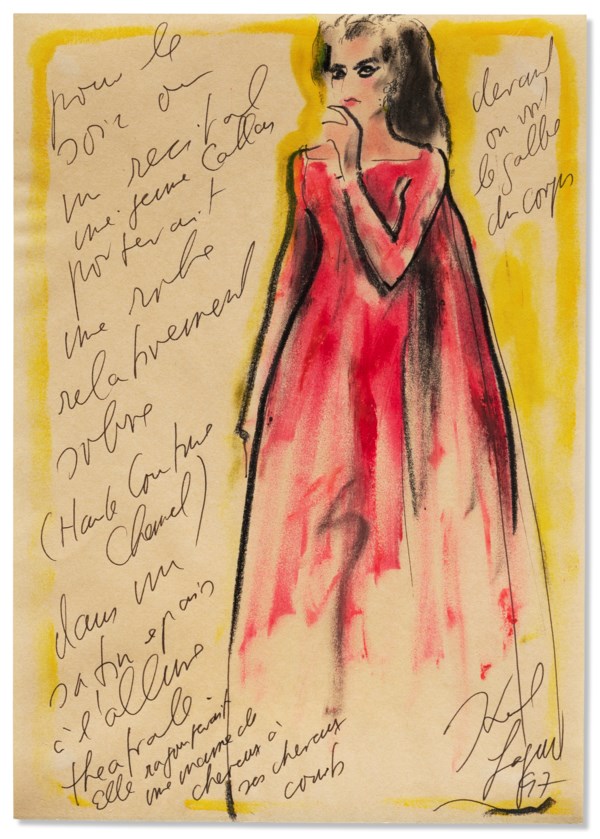 pour le
soir ou
un recital
une jeune Callas
porterait
une robe
relativement
sobre
(Haute Couture
Chanel)
dans un
satin epais
à l'allure
theatrale
Elle rajouterait
une masse de
cheveux à
ses cheveux
courts
devant
on voit
le galbe
du corps
Karl
Lagerfeld
97